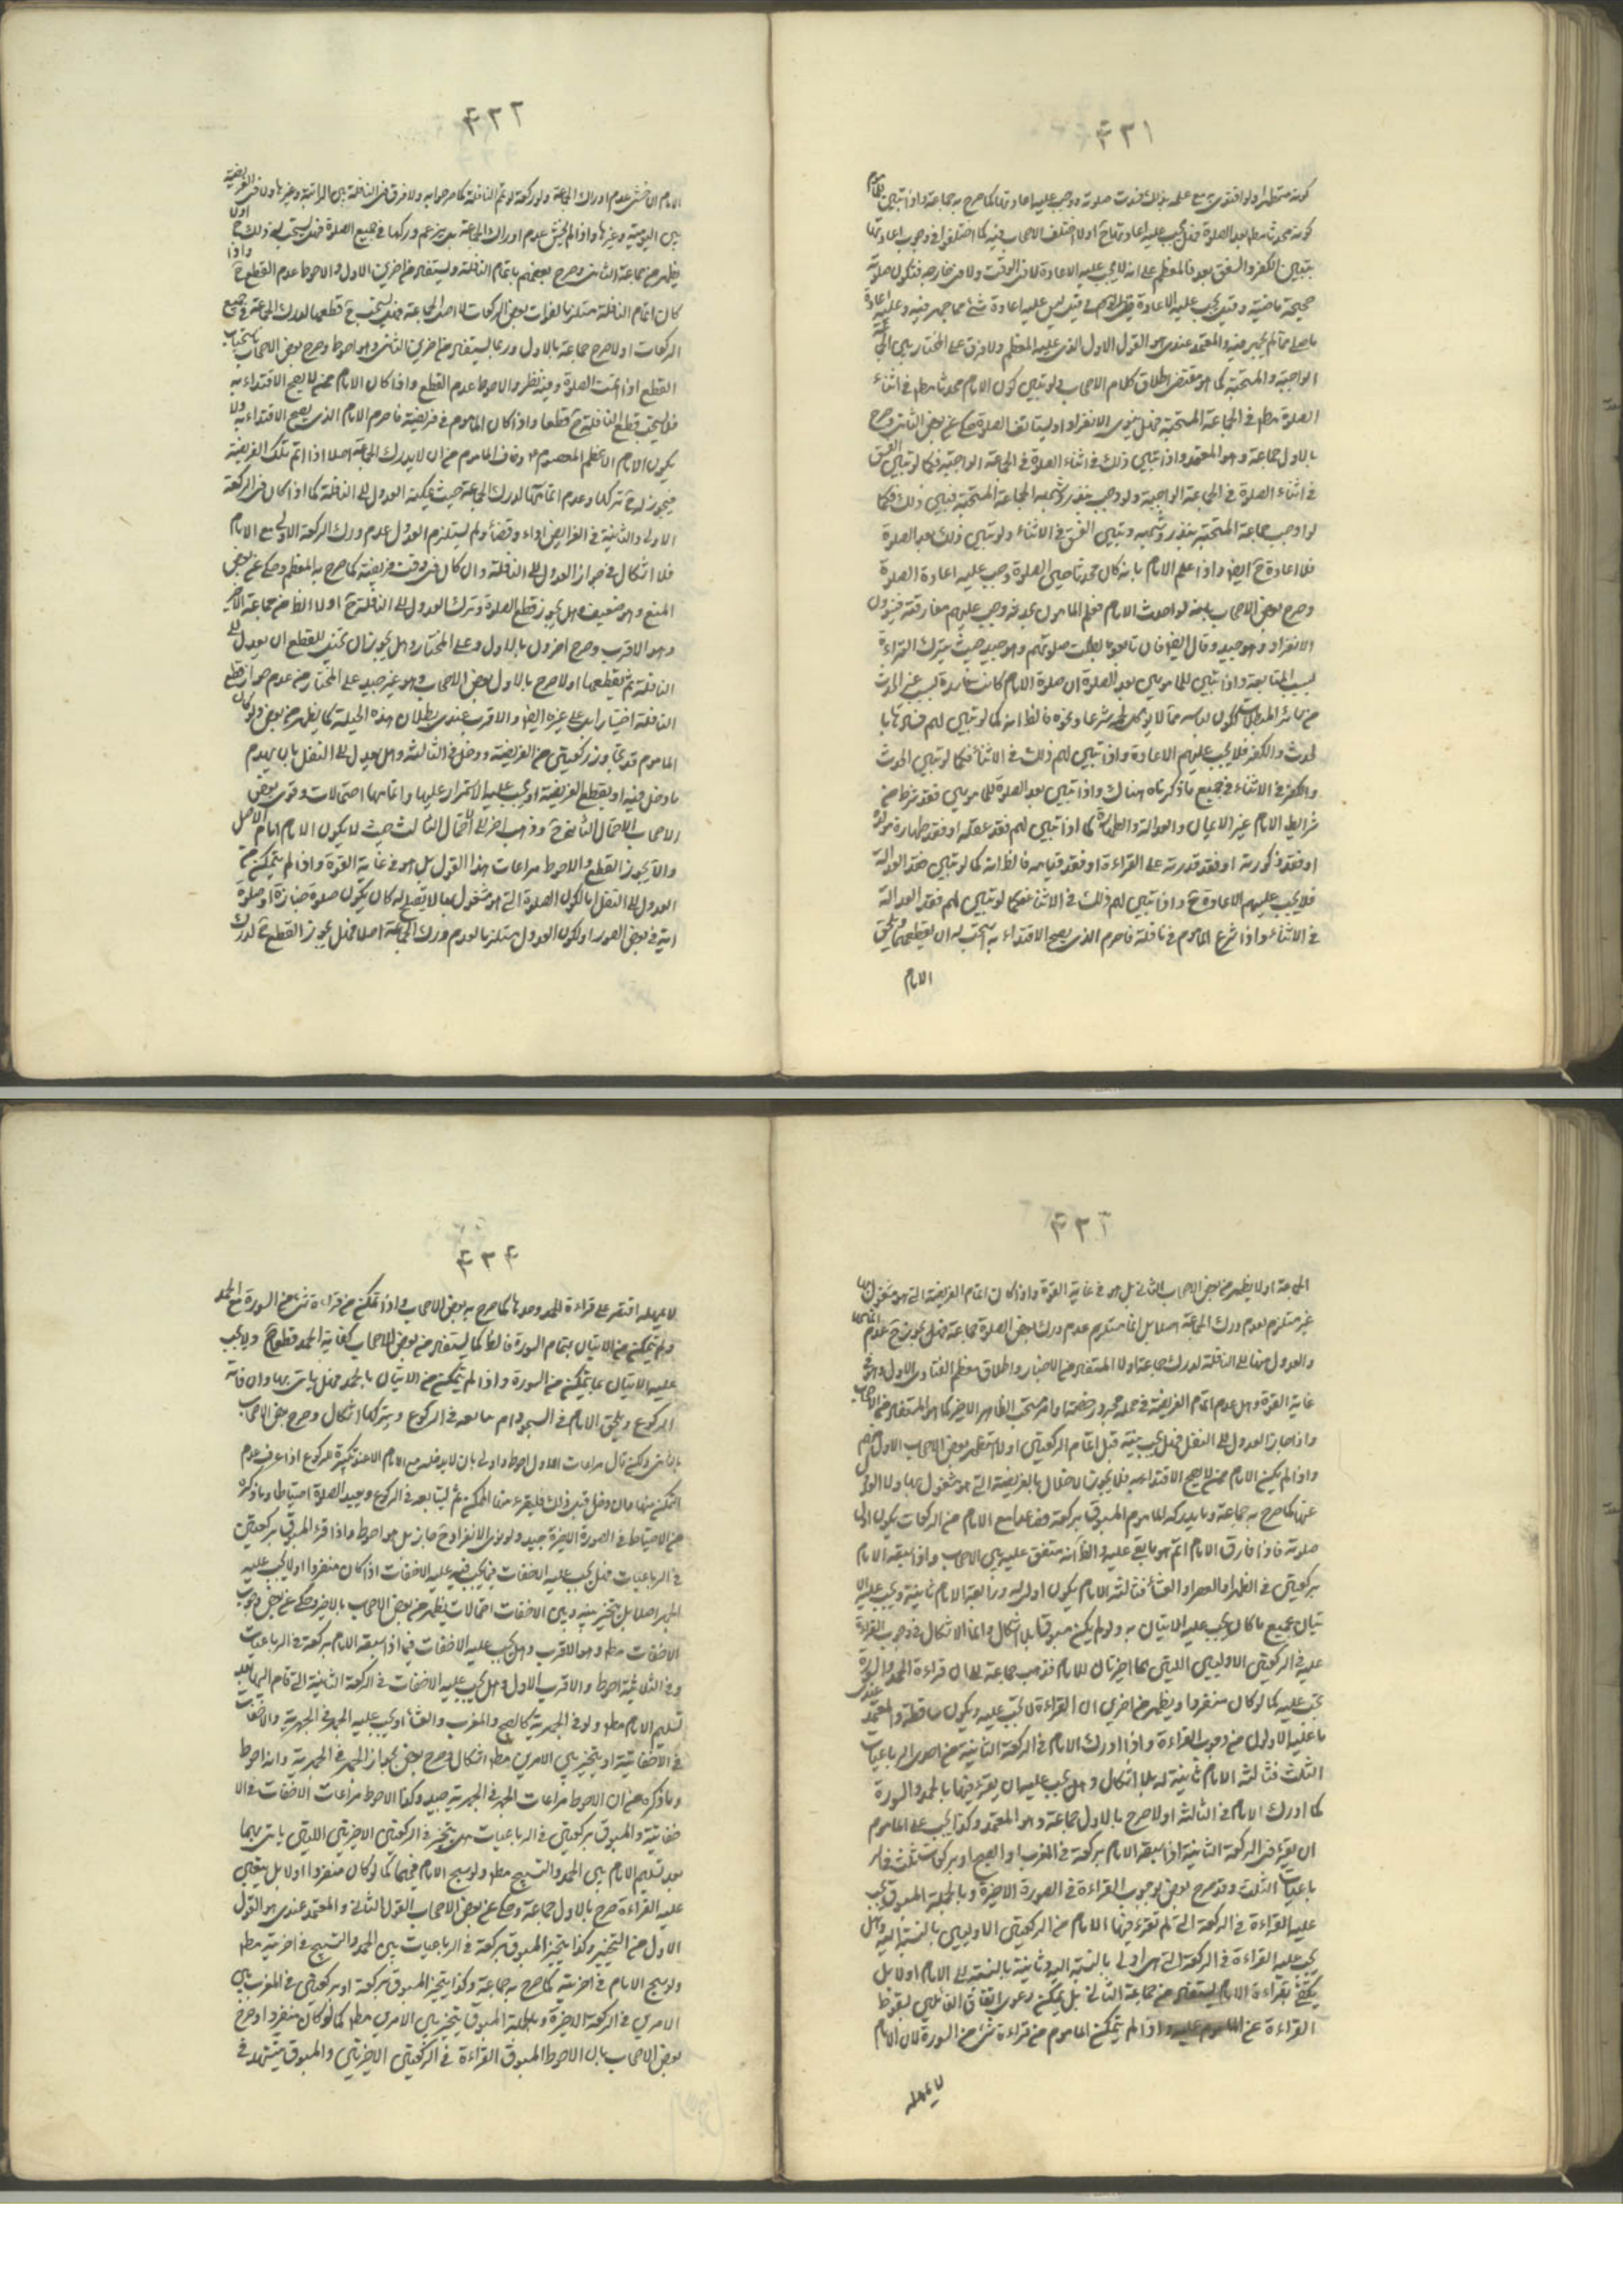 ٤٣١
كونه متطهرا ولو اقتدى مع علمه بذلك فسدت صلوته ووجب عليه اعادتها كما صرح به جماعة واذا تبين للماموم
كونه محدثا مطلقا بعد الصلوة فهل يجب عليه اعادتها ح اولا اختلف الاصحاب فيه كما اختلفوا في وجوب اعادتها
بتبين الكفر والفسق بعد فالمعظم على انه لا يجب عليه الاعادة لا في الوقت ولا في خارجه فتكون صلوته
صحيحة ماضية وقيل يجب عليه الاعادة وقيل ليس عليه اعادة شئ مما جهر فيه وعليه اعادة
ما صلى مما لم يجهر فيه والمعتمد عندى هو القول الاول الذى عليه المعظم ولا فرق على المختار بين الجماعة
الواجبة والمستحبة كما هو مقتضى اطلاق كلام الاصحاب ولو تبين كون الامام محدثا مطلقا في اثناء
الصلوة مطلقا في الجماعة المستحبة فهل ينوى الانفراد او يستانف الصلوة حكى عن بعض الثانى وصرح
بالاول جماعة وهو المعتمد واذا تبين ذلك في اثناء الصلوة في الجماعة الواجبة فكما لو تبين الفسق
في اثناء الصلوة في الجماعة الواجبة ولو وجب بنذر وشبهه الجماعة المستحبة فتبين ذلك فكما
لو اوجب جماعة المستحبة بنذر وشبهه وتبين الفسق في الاثناء ولو تبين ذلك بعد الصلوة
فلا اعادة ح ايضا واذا علم الامام بانه كان محدثا حين الصلوة وجب عليه اعادة الصلوة
وصرح بعض الاصحاب بانه لو احدث الامام فعلم المامون بحدثه وجب عليهم مفارقته فينوون
الانفراد وهو جيد وقال ايضا فان تابعوه بطلت صلوتهم وهو جيد حيث يترك القراءة
لسبب المتابعة واذا تبين للمامومين بعد الصلوة ان صلوة الامام كانت فاسدة لسبب غير الحدث
من سائر المبطلات ككون لباسه مما لا يؤكل لحمه شرعا ونحوه فالظ انه كما لو تبين لهم فسادها با
لحدث والكفر فلا يجب عليهم الاعادة واذا تبين لهم ذلك في الاثناء فكما لو تبين الحدث
والكفر في الاثناء في جميع ما ذكرناه هناك واذا تبين بعد الصلوة للمامومين فقد شرط من
شرايط الامام غير الايمان والعدالة والطهارة كما اذا تبين لهم فقد عقله او فقد طهارة مولده
او فقد ذكورته او فقد قدرته على القراءة او فقد قيامه فالظ انه كما لو تبين فقد العدالة
فلا يجب عليهم الاعادة ح واذا تبين لهم ذلك في الاثناء فكما لو تبين لهم فقد العدالة
في الاثناء واذا شرع الماموم في نافلة فاحرم الذى يصح الاقتداء به يستحب له ان يقطعها ويلحق
الامام
٤٣٢
الامام ان خشى عدم ادراك الجماعة ولو ركعة لو تم النافلة كما صرحوا به ولا فرق في النافلة بين الراتبة وغيرها ولا في الفريضة
بين اليومية وغيرها واذا لم يخش عدم ادراك الجماعة بل خشى عدم دركها في جميع الصلوة فهل يستحب له ذلك ح اولا
يظهر من جماعة الثانى وصرح بعضهم باتمام النافلة ويستفاد من اخرين الاول والاحوط عدم القطع ح واذا
كان اتمام النافلة مستلزما لفوات بعض الركعات لا اصل الجماعة فهل يستحب ح قطعها لدرك الجماعة في جميع
الركعات اولا صرح جماعة بالاول وربما يستفاد من اخرين الثانى وهو احوط وصرح بعض الاصحاب باستحباب
القطع اذا اقيمت الصلوة وفيه نظر والاحوط عدم القطع واذا كان الامام ممن لا يصح الاقتداء به
فلا يستحب قطع النافلة ح قطعا واذا كان الماموم في فريضة فاحرم الامام الذى يصح الاقتداء به ولا
يكون الامام الاعظم المعصوم ع وخاف الماموم من ان لا يدرك الجماعة اصلا اذا اتم تلك الفريضة
فيجوز له ح تركها وعدم اتمامها لدرك الجماعة حيث يمكنه العدول الى النافلة كما اذا كان في الركعة
الاولى والثانية في الفرايض اداء وقضاء ولم يستلزم العدول عدم درك الركعة الاولى مع الامام
فلا اشكال في جواز العدول الى النافلة وان كان في وقت فريضة كما صرح به المعظم وحكى عن بعض
المنع وهو ضعيف وهل يجوز قطع الصلوة وترك العدول الى النافلة ح اولا الظ من جماعة الاخير
وهو الاقرب وصرح اخرون بالاول وعلى المختار هل يجوز ان يحتال للقطع ان يعدل الى
النافلة ثم يقطعها اولا صرح بالاول بعض الاصحاب وهو غير جيد على المختار من عدم جواز قطع
النافلة اختيارا بل على غيره ايضا والاقرب عندى بطلان هذه الحيلة كما يظهر من بعض ولو كان
الماموم قد تجاوز ركعتين من الفريضة ودخل في الثالثة وهل يعدل الى النفل بان يهدم
ما دخل فيه او يقطع الفريضة او يجب عليه الاستمرار عليها واتمامها احتمالات وقوى بعض
الاصحاب الاحتمال الثانى ح وذهب اخر الى الاحتمال الثالث حيث لا يكون الامام امام الاصل
والا يجوز القطع والاحوط مراعات هذا القول بل هو في غاية القوة واذا لم يتمكن من
العدول الى النفل اما لكون الصلوة التى هو مشغول بها لا يصلح له كان يكون صلوة جنازة او صلوة
اية في بعض الصور او لكون العدول مستلزما لعدم درك الجماعة اصلا فهل يجوز القطع ح لدرك
٤٣٣
الجماعة اولا يظهر من بعض الاصحاب الثانى بل هو في غاية القوة واذا كان اتمام الفريضة التى هو مشغول بها
غير مستلزم لعدم درك الجماعة اصلا بل انما يستلزم عدم درك بعض الصلوة جماعة فهل يجوز ح عدم اتمامها
والعدول منها الى النافلة لدرك جماعة اولا المستفاد من الاخبار واطلاق معظم الفتاوى الاول وهو في
غاية القوة وهل عدم اتمام الفريضة في محله مجرد رخصة او امر مستحب الظاهر الاخير كما هو المستفاد من الاصحاب
واذا جاز العدول الى النفل فهل يجب نيته قبل اتمام الركعتين اولا استظهر بعض الاصحاب الاول
واذا لم يكن الامام ممن لا يصح الاقتداء به فلا يجوز الاخلال بالفريضة التى هو مشغول بها ولا العدول
عنها كما صرح به جماعة وما يدركه الماموم المسبوق بركعة فصاعدا مع الامام من الركعات يكون اول
صلوته فاذا فارق الامام اتم هو ما بقى عليه والظ انه متفق عليه بين الاصحاب واذا سبقه الامام
بركعتين في الظهر او العصر او العشاء فثالثة الامام يكون اولى له ورابعة الامام ثانية ويجب عليه الا
تيان بجميع ما كان يجب عليه الاتيان به ولو لم يكن مسبوقا بلا اشكال وانما الاشكال في وجوب القراءة
عليه في الركعتين الاوليين اللتين هما اخيرتان للامام فذهب جماعة الى ان قراءة الحمد والسورة
تجب عليه كما لو كان منفردا ويظهر من اخرين ان القراءة لا تجب عليه ويكون ساقطة والمعتمد عندى
ما عليه الاولون من وجوب القراءة واذا ادرك الامام في الركعة الثانية من احدى الرباعيات
الثلث فثالثة الامام ثانية له بلا اشكال وهل يجب عليه ان يقرء فيها بالحمد والسورة
كما ادرك الامام في الثالثة اولا صرح بالاول جماعة وهو المعتمد وكذا يجب على الماموم
ان يقرء في الركعة الثانية اذا سبقه الامام بركعة في المغرب او الصبح او بركعات ثلث في الر
باعيات الثلث وقد صرح بعض بوجوب القراءة في الصورة الاخيرة وبالجملة المسبوق يجب
عليه القراءة في الركعة التى لم تقرء فيها الامام من الركعتين الاوليين بالنسبة اليه وهل
يجب عليه القراءة في الركعة التى هى اولى بالنسبة اليه وثانية بالنسبة الى الامام اولا بل
يكتفى بقراءة الامام يستفاد من جماعة الثانى بل يمكن دعوى اتفاق القائلين بسقوط
القراءة عن الماموم عليه واذا لم يتمكن الماموم من قراءة شئ من السورة لان الامام
لا يمهله
٤٣٤
لا يمهله اقتصر على قراءة الحمد وحدها كما صرح به بعض الاصحاب واذا تمكن من قراءة شئ من السورة مع الحمد
ولم يتمكن من الاتيان بتمام السورة فالظ كما يستفاد من بعض الاصحاب كفاية الحمد قطعا ح ولا يجب
عليه الاتيان بما يتمكن من السورة واذا لم يتمكن من الاتيان بالحمد فهل ياتى بها وان فاته
الركوع ويلحق الامام في السجود ام يتابعه في الركوع ويتركها اشكال وصرح بعض الاصحاب
بالثانى ولكن قال مراعات الاول احوط واولى بان لا يدخل مع الامام الا عند تكبيرة الركوع اذا عرف عدم
التمكن منها وان دخل قبل ذلك فليقرء منها الممكن ثم ليتابعه في الركوع ويعيد الصلوة احتياطا وما ذكره
من الاحتياط في الصورة الاخيرة جيد ولو نوى الانفراد ح جاز بل هو احوط واذا قرء المسبوق بركعتين
في الرباعيات فهل يجب عليه الاخفات فيما يجب فيه عليه الاخفات اذا كان منفردا اولا يجب عليه
الجهر اصلا بل يتخير بينه وبين الاخفات احتمالات يظهر من بعض الاصحاب بالاخير وحكى عن بعض وجوب
الاخفات مطلقا وهو الاقرب وهل يجب عليه الاخفات فيما اذا سبقه الامام بركعة في الرباعيات
وفى الثلاثية احوط والاقرب الاول وهل يجب عليه الاخفات في الركعة الثانية التى قام اليها بعد
تسليم الامام مطلقا ولو في الجهرية كالصبح والمغرب والعشاء او يجب عليه الجهر في الجهرية والاخفات
في الاخفاتية او يتخير بين الامرين مطلقا اشكال وصرح بعض بجواز الجهر في الجهرية وانه احوط
وما ذكره من ان الاحوط مراعات الجهر في الجهرية جيد وكذا الاحوط مراعات الاخفات في الا
خفاتية والمسبوق بركعتين في الرباعيات هل يتخير في الركعتين الاخيرتين اللتين ياتى بهما
بعد تسليم الامام بين الحمد والتسبيح مطلقا ولو سبح الامام فيهما كما لو كان منفردا اولا بل يتعين
عليه القراءة صرح بالاول جماعة وحكى عن بعض الاصحاب القول الثانى والمعتمد عندى هو القول
الاول من التخيير وكذا يتخير المسبوق بركعة في الرباعيات بين الحمد والتسبيح في اخيرتيه مطلقا
ولو سبح الامام في اخيرتيه كما صرح به جماعة وكذا يتخير المسبوق بركعة او بركعتين في المغرب بين
الامرين في الركعة الاخيرة وبالجملة المسبوق يتخير بين الامرين مطلقا كما لو كان منفردا وصرح
بعض الاصحاب بان الاحوط للمسبوق القراءة في الركعتين الاخيرتين والمسبوق يتشهد في